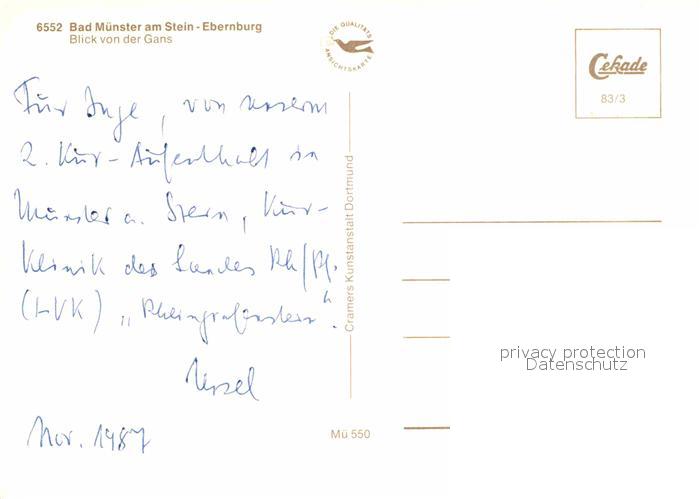 6552 Bad Münster am Stein - Ebernburg
Blick von der Gans
DIE QUALITÄTS
ANSICHTSKARTE
Cekade
83/3
Für Inge, von unserm
2. Kur-Aufenthalt in
Münster a. Stein, Kur-
Klinik des Landes Rh/Pf.
(LVK) „Rheingrafenstein“.
Ursel
Nov. 1987
Cramers Kunstanstalt Dortmund
Mü 550
privacy protection
Datenschutz